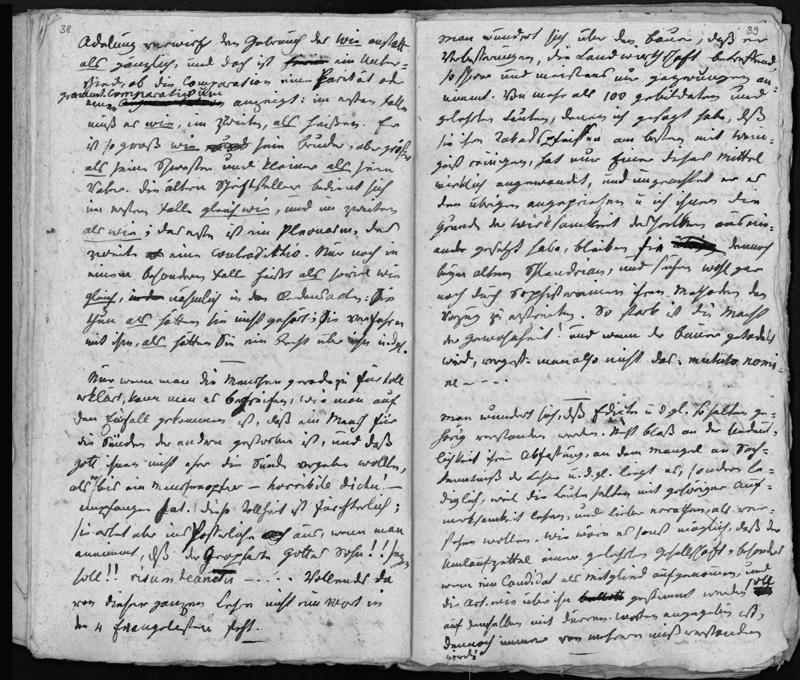 38
Adelung verwirft den Gebrauch des wie anstatt
als gänzlich, und doch ist ein Unter-
schied, ob die Comparation eine Parität oder
grammat. Comparation
einen anzeigt; im ersten Falle
muß es wie, im zweiten, als heißen. Er
ist so groß wie sein Bruder, aber größer
als seine Schwester und kleiner als sein
Vater. Die alten Schriftsteller bedient sich
im ersten Falle gleich wie, und im zweiten
als wie; das erste ist ein Pleonasm, das
zweite eine contradictio. Nur noch in
einem besondern Falle heißt als soviel wie
gleich, nähmlich in den Redensarten: Sie
thun als hätten Sie nicht gehört; Sie verfahren
mit ihm, als hätten Sie ein Recht über ihn u. dgl.
Nur wenn man die Menschen geradezu für toll
erklärt, kann man es begreifen, wie man auf
den Einfall gekommen ist, daß ein Mensch für
die Sünden der andern gestorben ist, und daß
Gott ihnen nicht eher die Sünde vergeben wollte,
als bis ein Menschenopfer – horribile dictu! –
empfangen hat. Diese Tollheit ist fürchterlich;
sie artet aber ins Possierliche aus, wenn man
annimmt, daß der Geopferte Gottes Sohn!! seyn
soll!! risum teneatis – . . . . Vollends da
von dieser ganzen Lehre nicht ein Wort in
den 4 Evangelisten steht.
39
Man wundert sich über den Bauer, daß er
Verbesserungen, die Landwirthschaft betreffend
so schwer und meistens nur gezwungen an-
nimmt. Von mehr als 100 gebildeten und
gelehrten Leuten, denen ich gesagt habe, daß
sie ihre Tabackspfeifen am besten mit Wein-
geist reinigen, hat nur Einer dieses Mittel
wirklich angewandt, und ungeachtet er es
den übrigen angepriesen u ich ihnen die
Gründe der Wirksamkeit desselben ausein-
ander gesetzt habe, bleiben sie dennoch
beym alten Schlendrian, und suchen wohl gar
noch durch Sophistereien ihrer Methode den
Vorzug zu erstreiten. So stark ist die Macht
der Gewohnheit! und wenn der Bauer getadelt
wird, vergeß man also nicht das: mutato nomi
ne – – – –
Man wundert sich, daß Edicte u. dgl. so selten ge-
hörig verstanden werden. Nicht bloß an der Undeut-
lichkeit ihrer Abfassung, an dem Mangel an Sach-
kenntniß der Leser u. dgl. liegt es, sondern le-
diglich, weil die Leute selten mit gehöriger Auf-
merksamkeit lesen, und lieber errathen, als ver-
stehen wollen. Wie wäre es sonst möglich, daß der
Umlaufzettel einer gelehrten Gesellschaft, besonders
wenn ein Candidat als Mitglied aufgenommen, und
die Art, wie über ihn gestimmt werden soll
auf demselben mit dürren Worten angegeben ist,
dennoch immer von mehrern mißverstanden
wird?